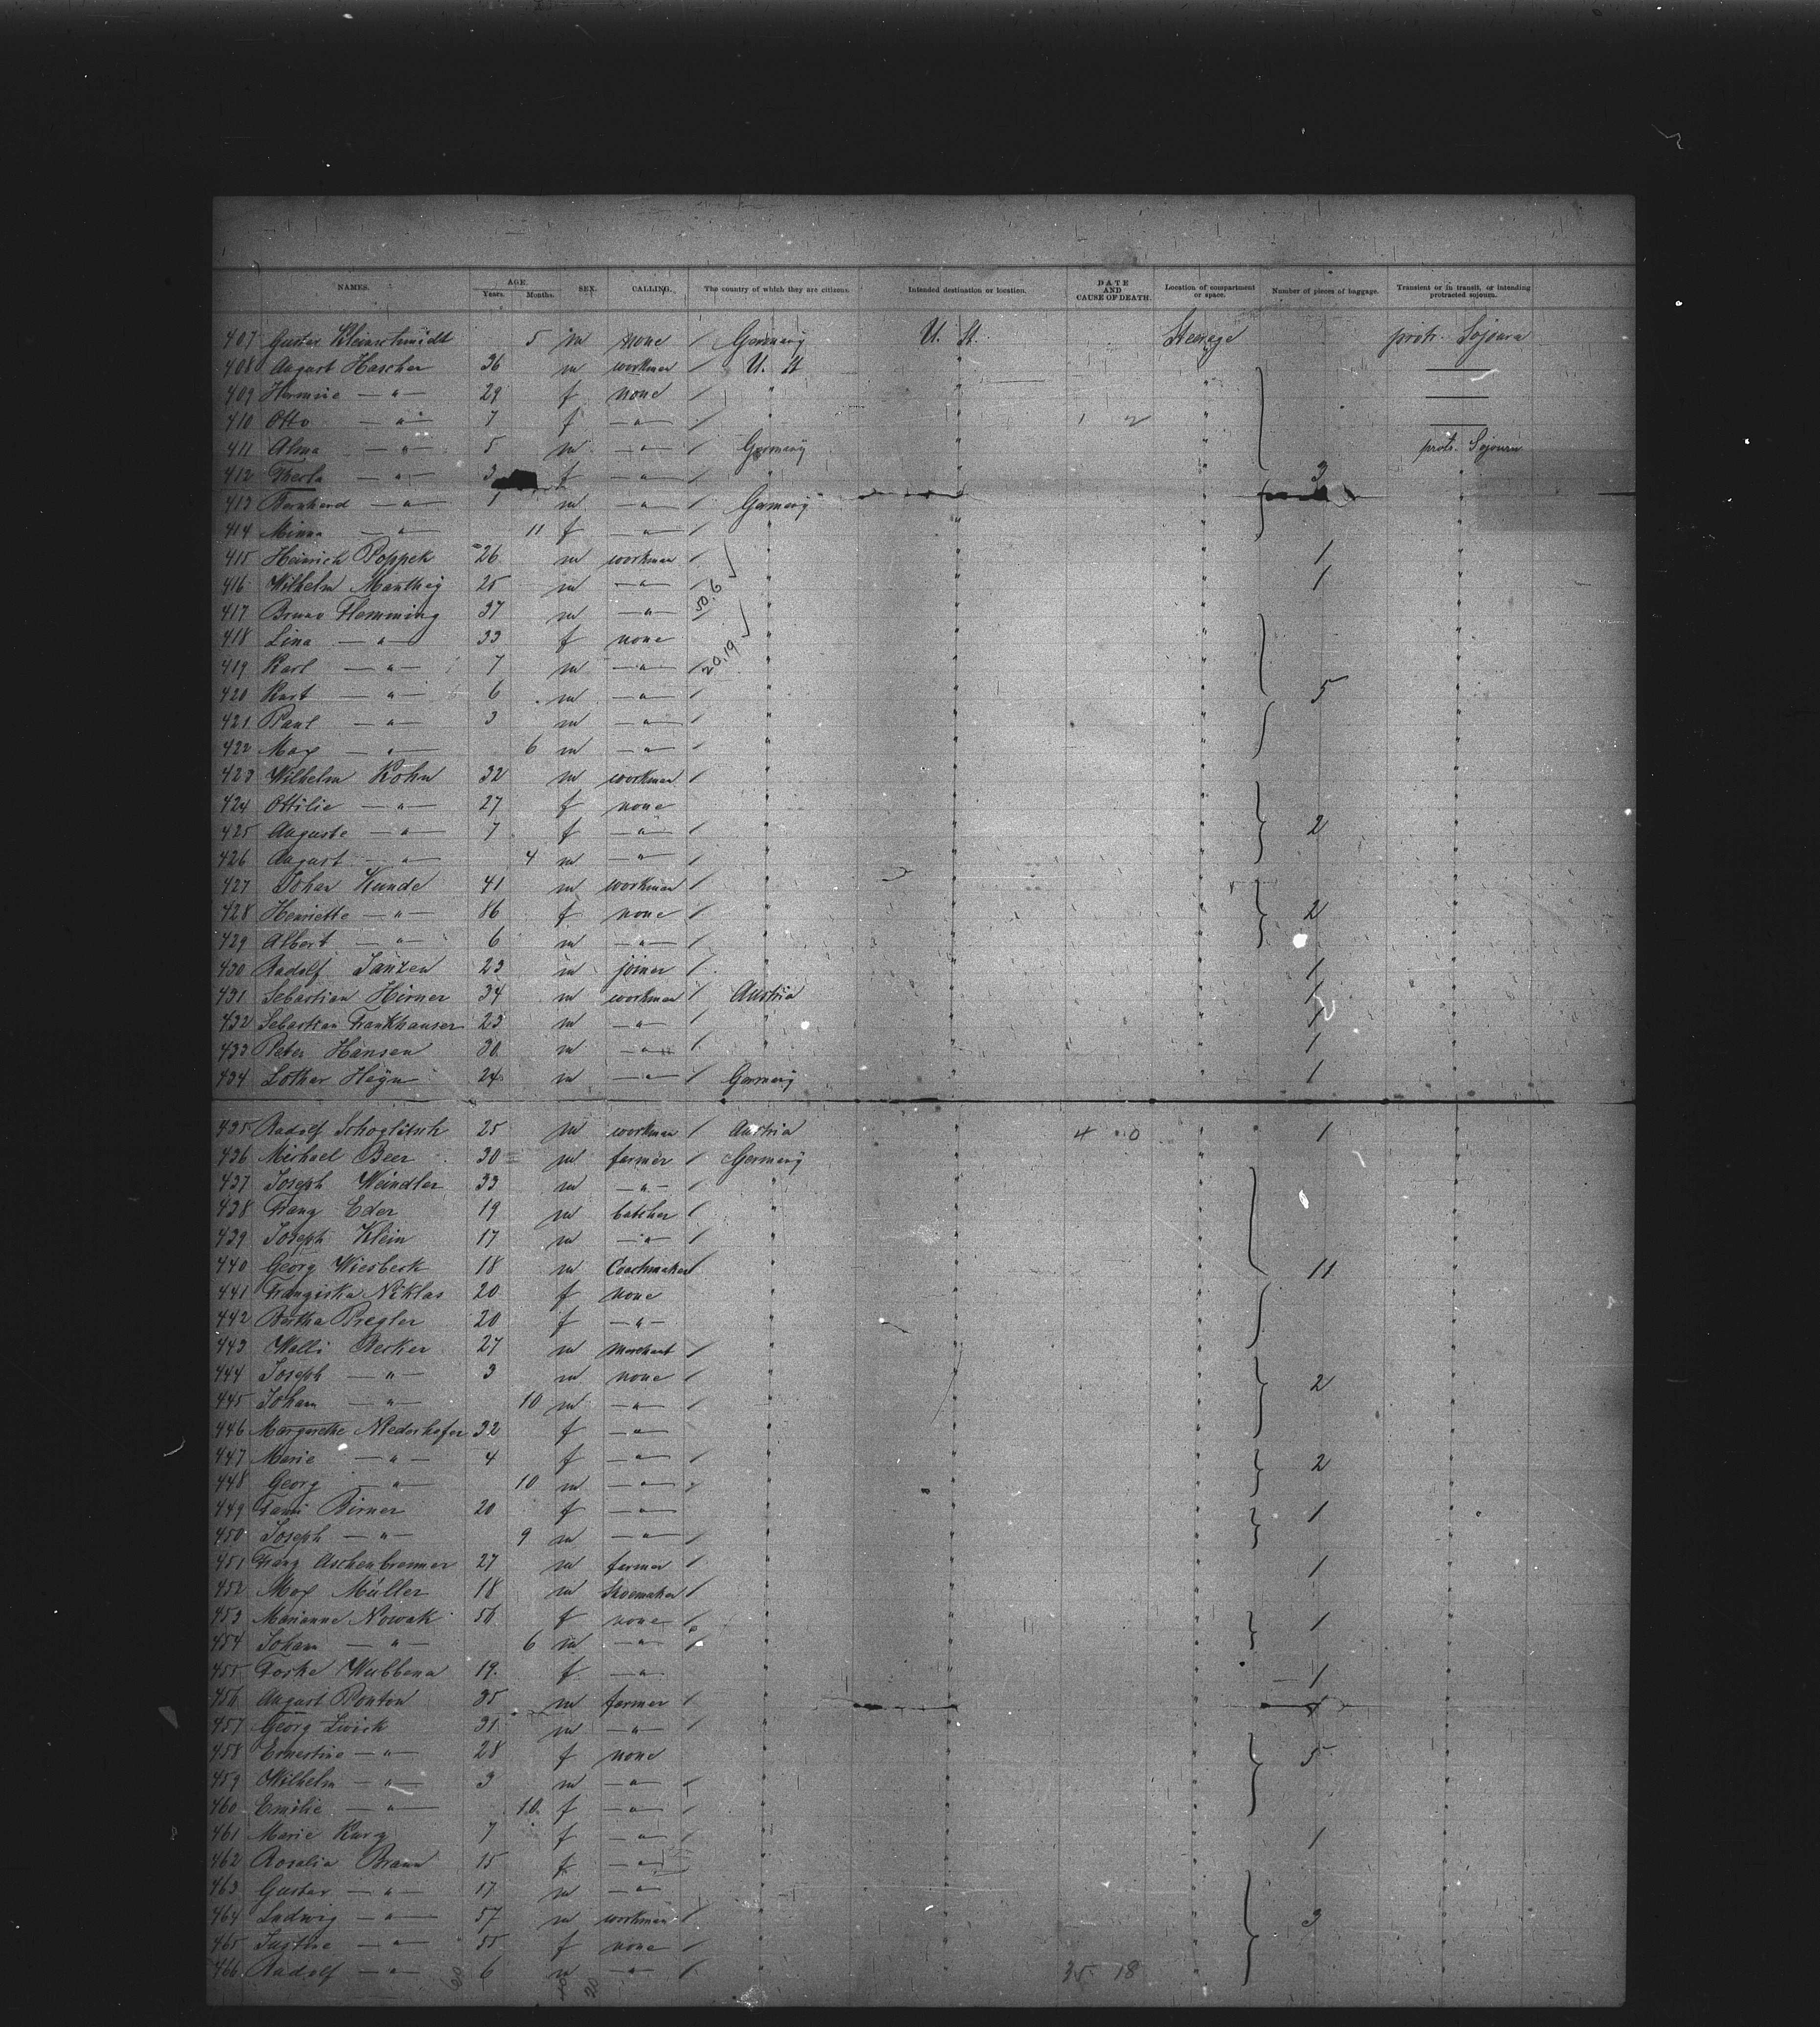 NAMES. AGE. Years. Months. SEX. CALLING. The country of which they are citizens. Intended destination or location. DATE AND CAUSE OF DEATH. Location of compartment or space. Number of pieces of baggage. Transient or in transit, or intending protracted sojourn.
407 Gustav Kleinschmidt 5 m none / Germany U. St. Steerage protr. Sojourn
408 August Hascher 36 m workman / U. St " " —
409 Hermine — " — 29 f none / " " " —
410 Otto — " — 7 f — " — / " 1 2 " —
411 Alma — " — 5 m — " — / Germany " " protr. Sojourn
412 — " — 3 f — " — / " " 3 "
413 Bernhard — " — 1 m — " — / Germany "
414 Minna — " — 11 f — " — / " " "
415 Heinrich Poppek 26 m workman / " " " 1 "
416 Wilhelm Manthey 25 m — " — / " " " 1 "
417 Bruno Flemming 37 m — " — / 50.6 " " " "
418 Lina — " — 33 f none " " " "
419 Karl — " — 7 m — " — / 20,19 " " " "
420 Kurt — " — 6 m — " — / " " " 5 "
421 Paul — " — 3 m — " — / " " " "
422 Max — " — 6 m — " — / " " " "
423 Wilhelm Kohn 32 m workman / " " " "
424 Ottilie — " — 27 f none " " " "
425 Auguste — " — 7 f — " — / " " " 2 "
426 August — " — 4 m — " — / " " " "
427 Johan Kunde 41 m workman / " " " "
428 Henriette — " — 86 f none / " " " 2 "
429 Albert — " — 6 m — " — / " " " "
430 Radolf Janzen 23 m joiner / " " " 1 "
431 Sebastian Hirner 34 m workman / Austria " " 1 "
432 Sebastian Frankhauser 23 m — " — / " " " 1 "
433 Peter Hansen 30 m — " — / " " " 1 "
434 Lothar Heyn 24 m — " — / Germany " " 1 "
435 Radolf 25 m workman / Austria " 4 0 " 1 "
436 Michael Beer 30 m farmer / Germany " " "
437 Joseph Weindler 33 m — " — / " " " "
438 Franz Eder 19 m butcher / " " " "
439 Joseph Klein 17 m — " — / " " " "
440 Georg Wiesbeck 18 m Coachmaker / " " " 11 "
441 Franziska Niklas 20 f none " " " "
442 Bertha Piegler 20 f — " — " " " "
443 Walli Becker 27 m Merchant / " " " "
444 Joseph — " — 3 m none / " " " 2 "
445 Johann — " — 10 m — " — / " " " "
446 Margarethe Niederhofer 32 f — " — " " " "
447 Marie — " — 4 f — " — / " " " 2 "
448 Georg — " — 10 m — " — / " " " "
449 Fanni Birner 20 f — " — " " " 1 "
450 Joseph — " — 9 m — " — / " " " "
451 Franz Aschenbrenner 27 m farmer / " " " 1 "
452 Max Müller 18 m Shoemaker / " " " "
453 Marianne Nowak 56 f none / " " " 1 "
454 Johann — " — 6 m — " — / " " " "
455 Wubbena 19 f — " — " " " 1 "
456 August Ponton 35 m farmer / " " " 1 "
457 Georg Zwick 31 m — " — / " " " "
458 Ernestine — " — 28 f none " " " 5 "
459 Wilhelm — " — 3 m — " — / " " " "
460 Emilie — " — 10 f — " — / " " " "
461 Marie Kurz 7 f — " — / " " " 1 "
462 Rosalia Braun 15 f — " — " " " "
463 Gustav — " — 17 m — " — " " " "
464 Ludwig — " — 57 m workman / " " " 3 "
465 — " — 55 f none / " " " "
466 Radolf — " — 6 m — " — / " " 35 18 " "